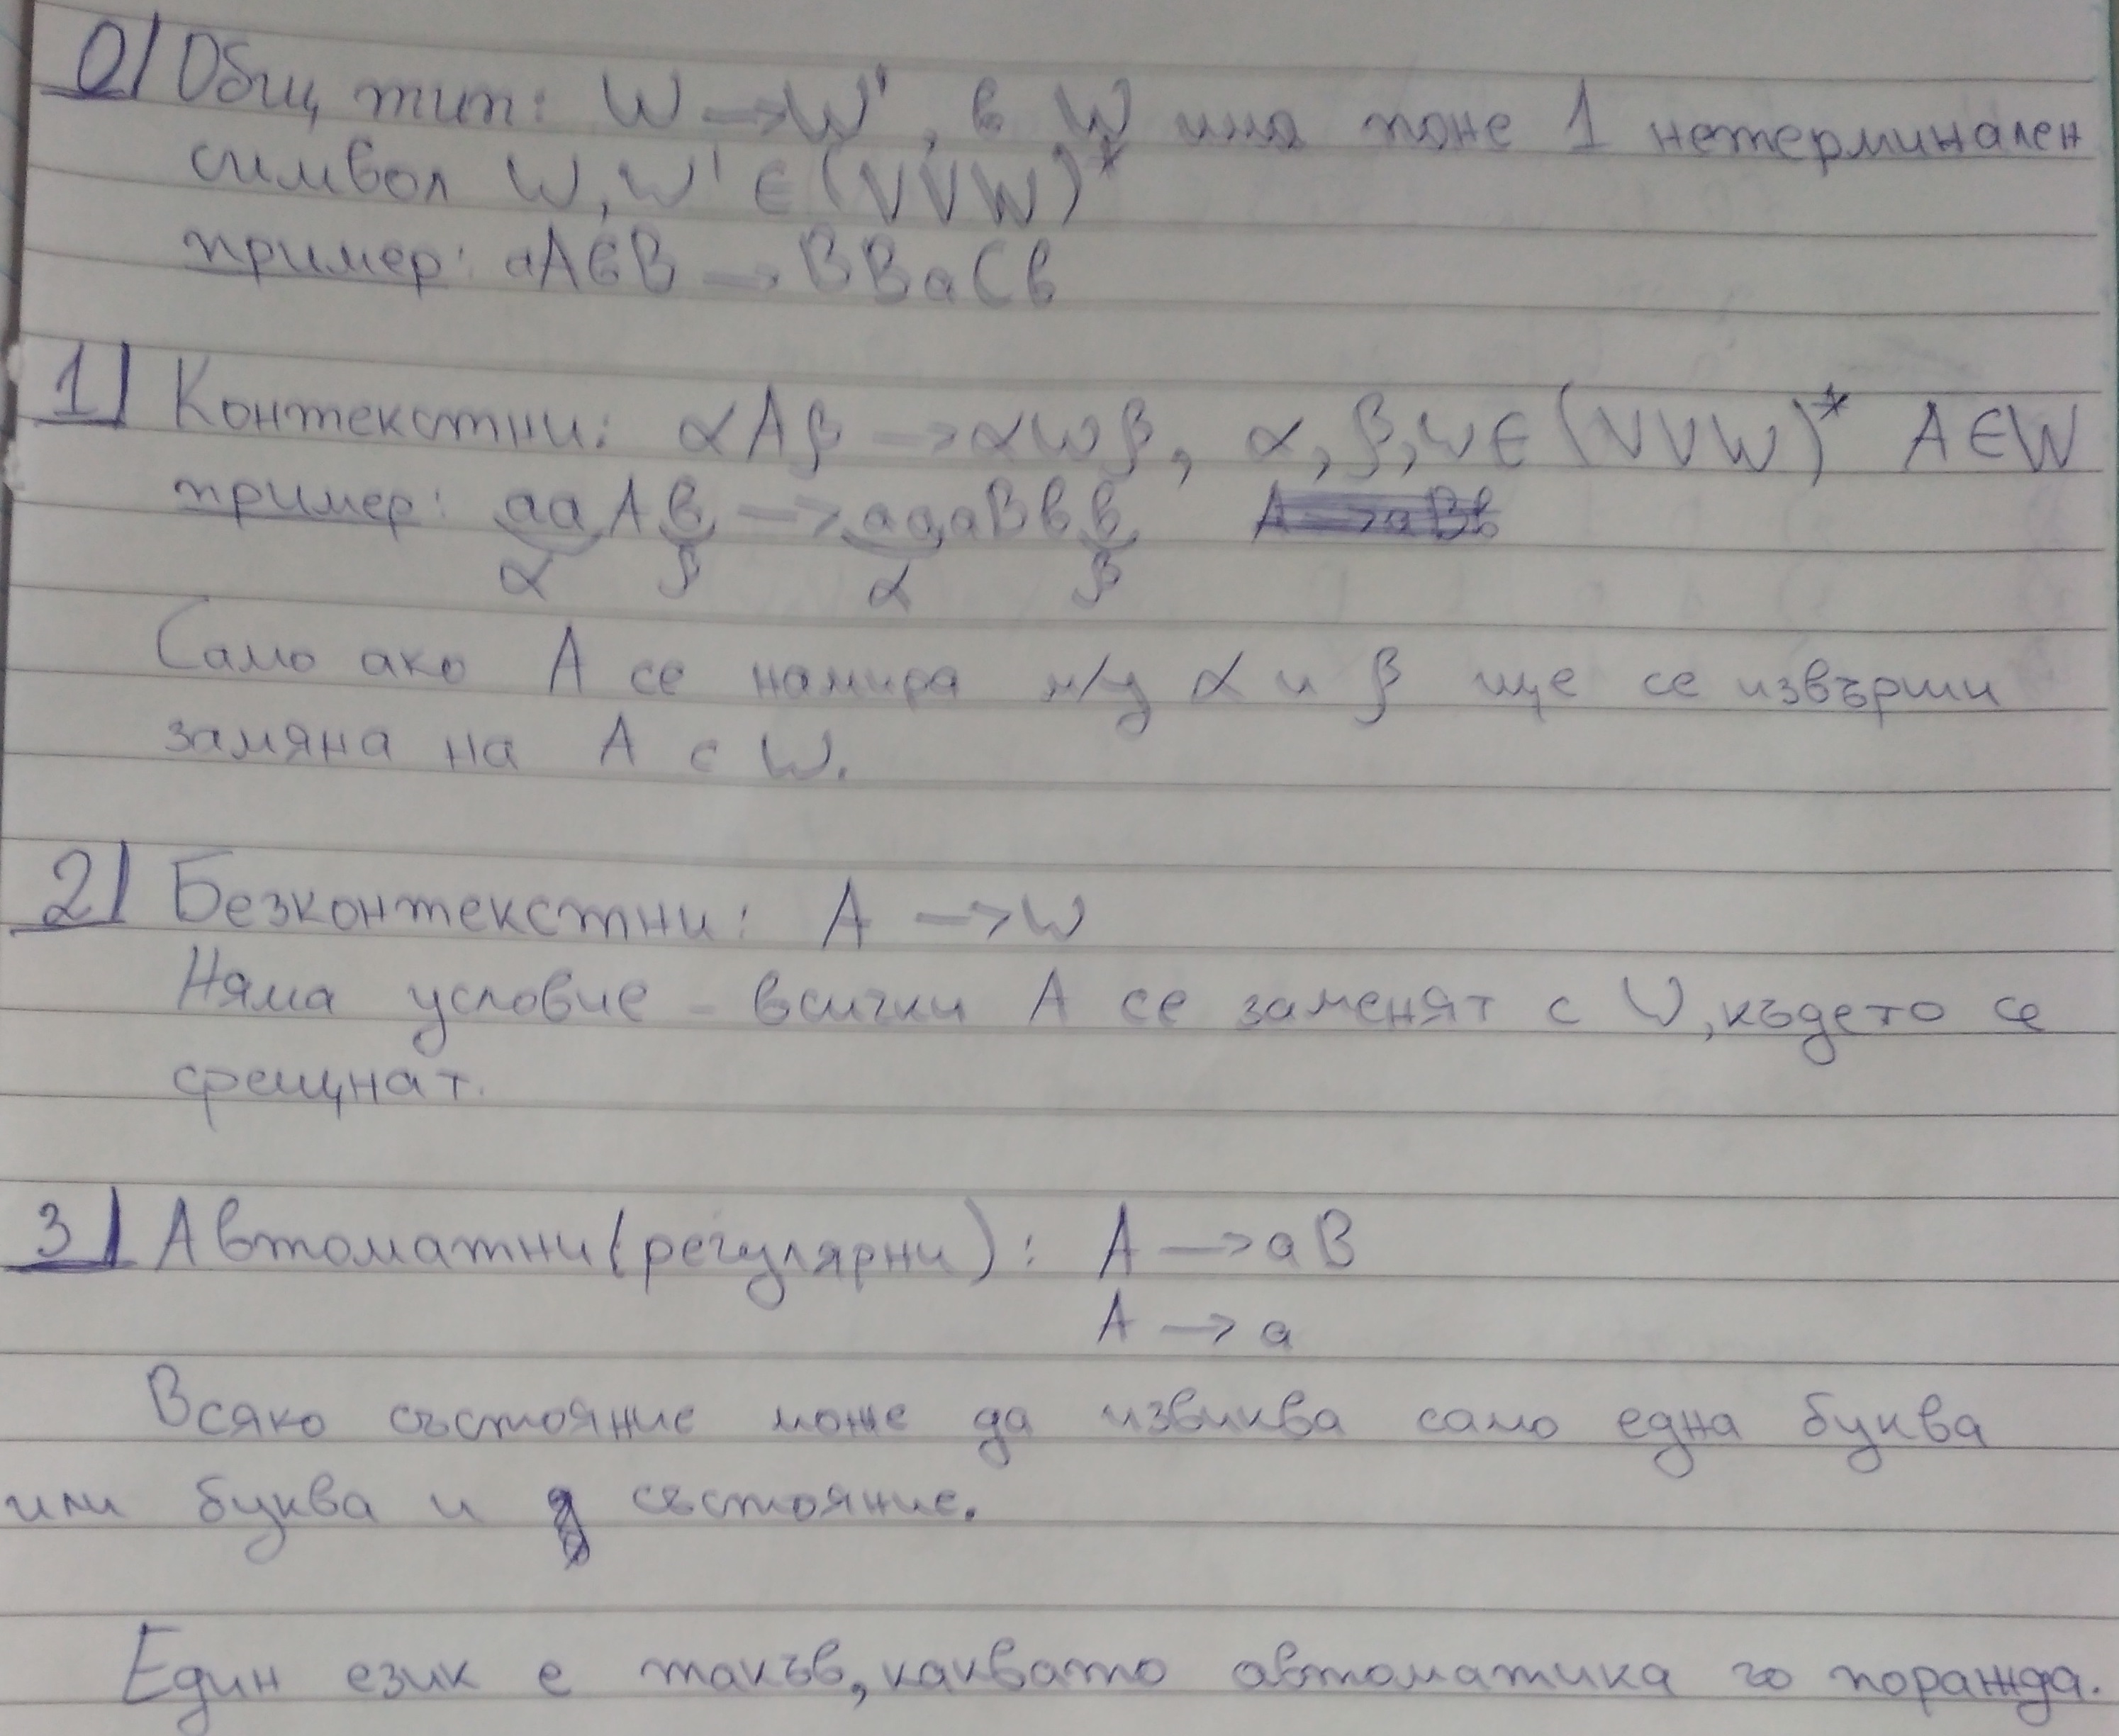 0/ Общ тип: W → W', в W има поне 1 нетерминален
символ W, W' ∈ (V∪W)*
пример: aAвB → BBaCв
1/ Контекстни: αAβ → αwβ, α, β, w ∈ (V∪W)* A∈W
пример: aaAв → aaaBвв A → aBв
α β α β
Само ако A се намира м/у α и β ще се извърши
замяна на A с W.
2/ Безконтекстни: A → W
Няма условие - всички A се заменят с W, където се
срещнат.
3/ Автоматни (регулярни): A → aB
A → a
Всяко състояние може да извиква само една буква
или буква и състояние.
Един език е такъв, каквато автоматика го поражда.